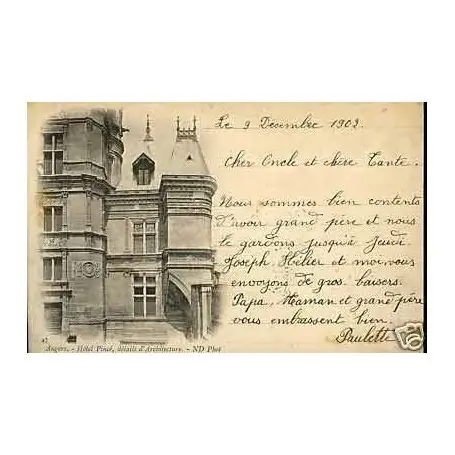 Le 9 Décembre 1902.
Cher Oncle et chère Tante.
Nous sommes bien contents
d'avoir grand père et nous
le gardons jusqu'à jeudi.
Joseph Hilier et moi vous
envoyons de gros baisers.
Papa, Maman et grand père
vous embrassent bien.
Paulette
47
Angers. - Hôtel Pincé, détails d'Architecture. - ND Phot